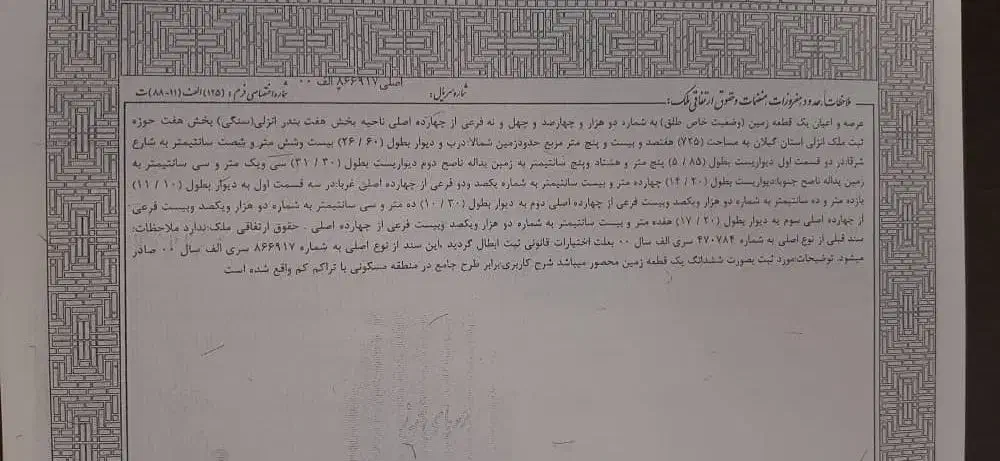 اصلی ۸۶۶۹۱۷ الف ۰۰
ملاحظات، حدود، مفروزات، منضمات و حقوق ارتفاقی ملک: شماره سریال: شماره اختصاصی فرم: (۱۲۵) الف (۱۱-۸۸) ت
عرصه و اعیان یک قطعه زمین (وضعیت خاص طلق) به شماره دو هزار و چهارصد و چهل و نه فرعی از چهارده اصلی ناحیه بخش هفت بندر انزلی(سنگی) بخش هفت حوزه
ثبت ملک انزلی استان گیلان به مساحت (۷۲۵) هفتصد و بیست و پنج متر مربع حدودزمین شمالا:درب و دیوار بطول (۶۰ / ۲۶) بیست وشش متر و شصت سانتیمتر به شارع
شرقا:در دو قسمت اول دیواریست بطول (۸۵ / ۵) پنج متر و هشتاد وپنج سانتیمتر به زمین یداله ناصح دوم دیواریست بطول (۳۰ / ۳۱) سی ویک متر و سی سانتیمتر به
زمین یداله ناصح جنوبا:دیواریست بطول (۲۰ / ۱۴) چهارده متر و بیست سانتیمتر به شماره یکصد ودو فرعی از چهارده اصلی غربا:در سه قسمت اول به دیوار بطول (۱۰ / ۱۱)
یازده متر و ده سانتیمتر به شماره دو هزار ویکصد وبیست فرعی از چهارده اصلی دوم به دیوار بطول (۳۰ / ۱۰) ده متر و سی سانتیمتر به شماره دو هزار ویکصد وبیست فرعی
از چهارده اصلی سوم به دیوار بطول (۲۰ / ۱۷) هفده متر و بیست سانتیمتر به شماره دو هزار ویکصد وبیست فرعی از چهارده اصلی . حقوق ارتفاقی ملک:ندارد ملاحظات:
سند قبلی از نوع اصلی به شماره ۴۷۰۷۸۴ سری الف سال ۰۰ بعلت اختیارات قانونی ثبت ابطال گردید ،این سند از نوع اصلی به شماره ۸۶۶۹۱۷ سری الف سال ۰۰ صادر
میشود. توضیحات:مورد ثبت بصورت ششدانگ یک قطعه زمین محصور میباشد شرح کاربری:برابر طرح جامع در منطقه مسکونی با تراکم کم واقع شده است